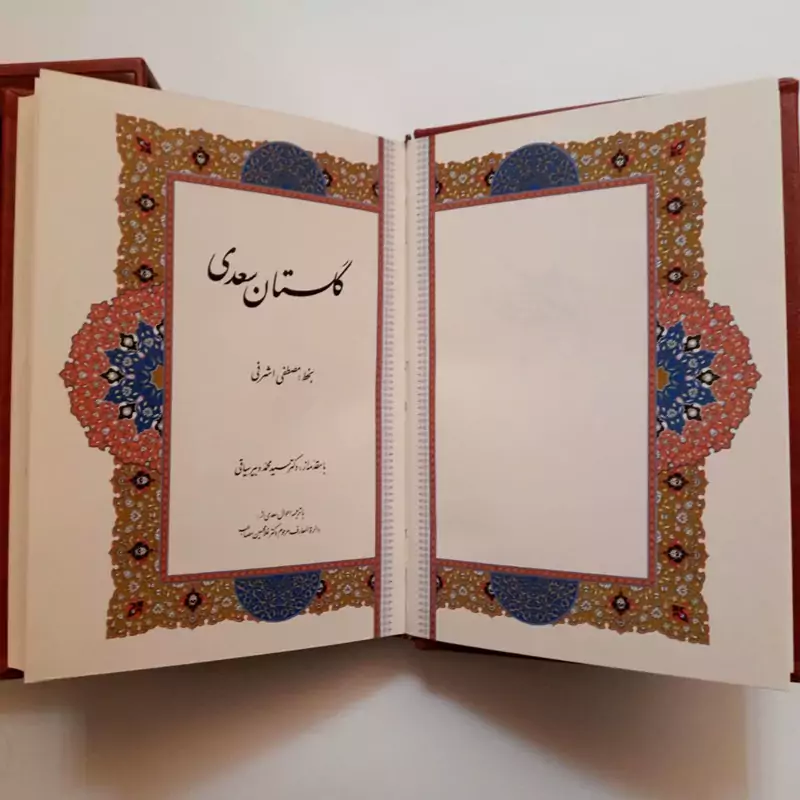 گلستان سعدی
بخط: مصطفی اشرفی
با مقدمه از: دکتر سید محمد دبیرسیاقی
با ترجمه احوال سعدی از:
دائرة المعارف مرحوم دکتر غلامحسین مصاحب